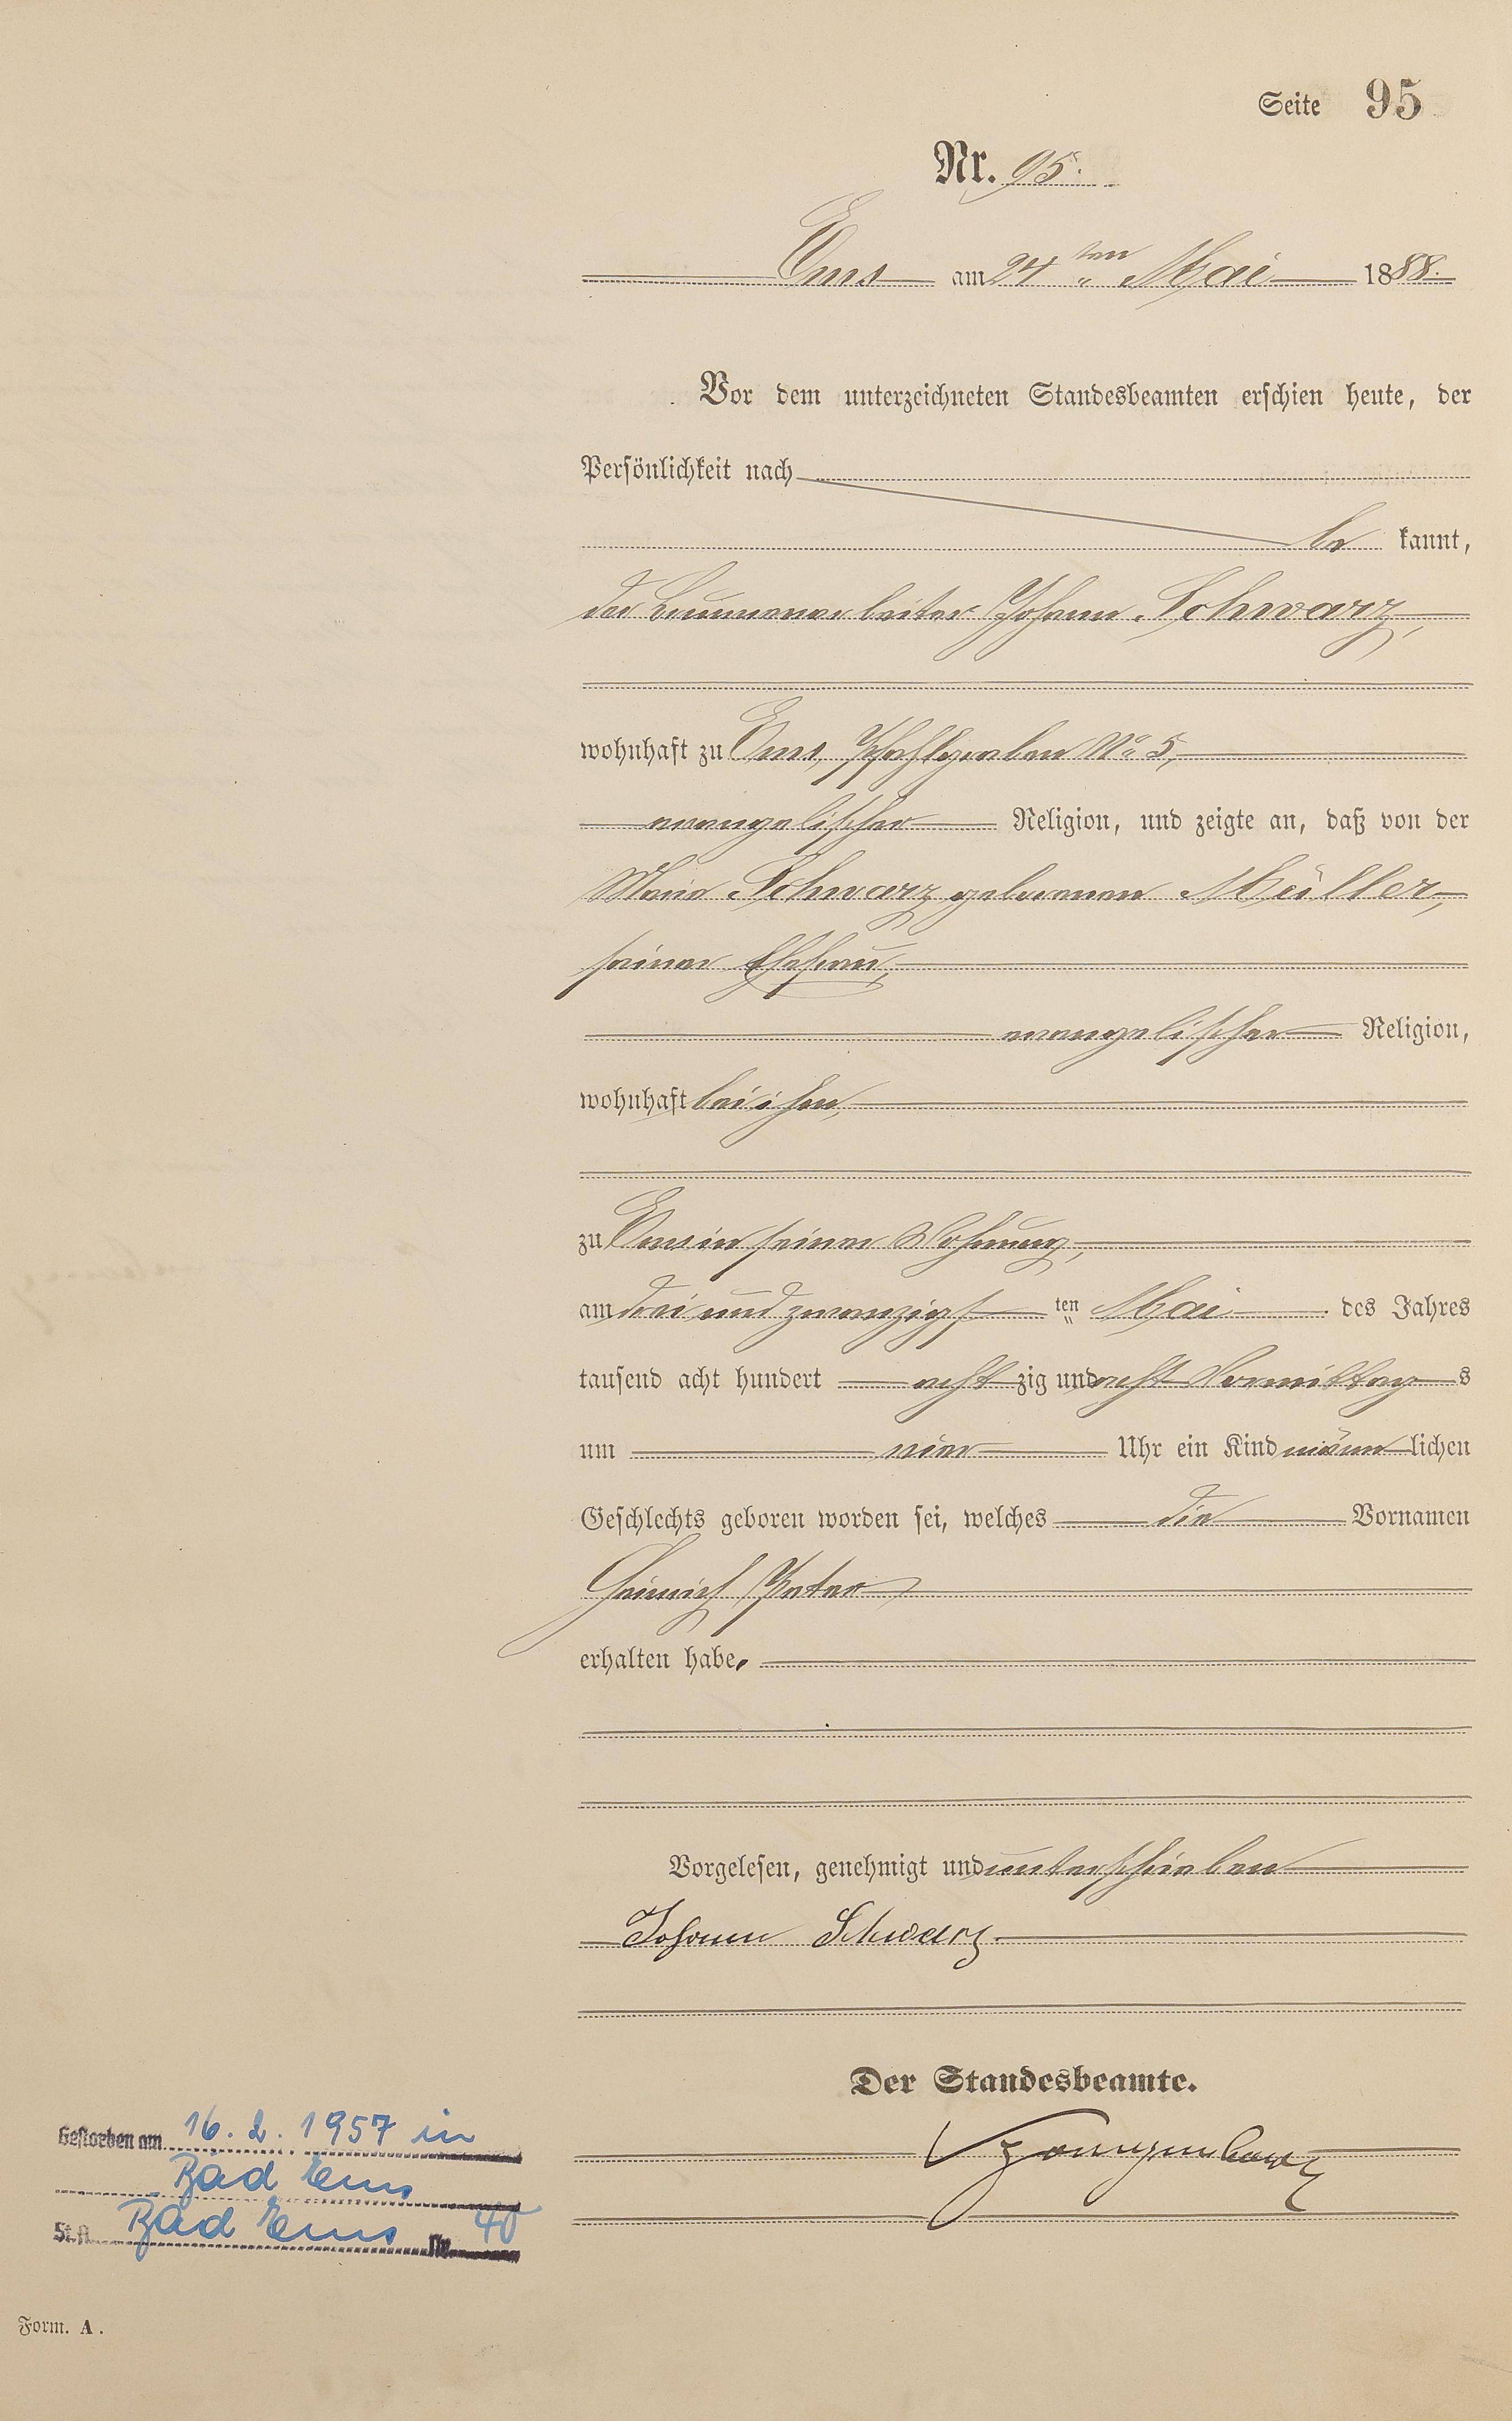 Seite 95
Nr. 95.
Ems am 24 ten Mai 1888.
Vor dem unterzeichneten Standesbeamten erschien heute, der
Persönlichkeit nach
be kannt,
der Brunnenarbeiter Johann Schwarz,
wohnhaft zu Ems, Pfahlgraben No 5,
evangelischer Religion, und zeigte an, daß von der
Marie Schwarz geborenen Müller,
seiner Ehefrau,
evangelischer Religion,
wohnhaft bei ihm,
zu Ems in seiner Wohnung,
am drei und zwanzigs ten Mai des Jahres
tausend acht hundert acht zig und acht Vormittag s
um vier Uhr ein Kind männ lichen
Geschlechts geboren worden sei, welches die Vornamen
Heinrich Peter
erhalten habe.
Vorgelesen, genehmigt und unterschrieben
Johann Schwarz
Der Standesbeamte.
Gestorben am 16.2.1957 in
Bad Ems
St.A. Bad Ems Nr. 40
Form. A.